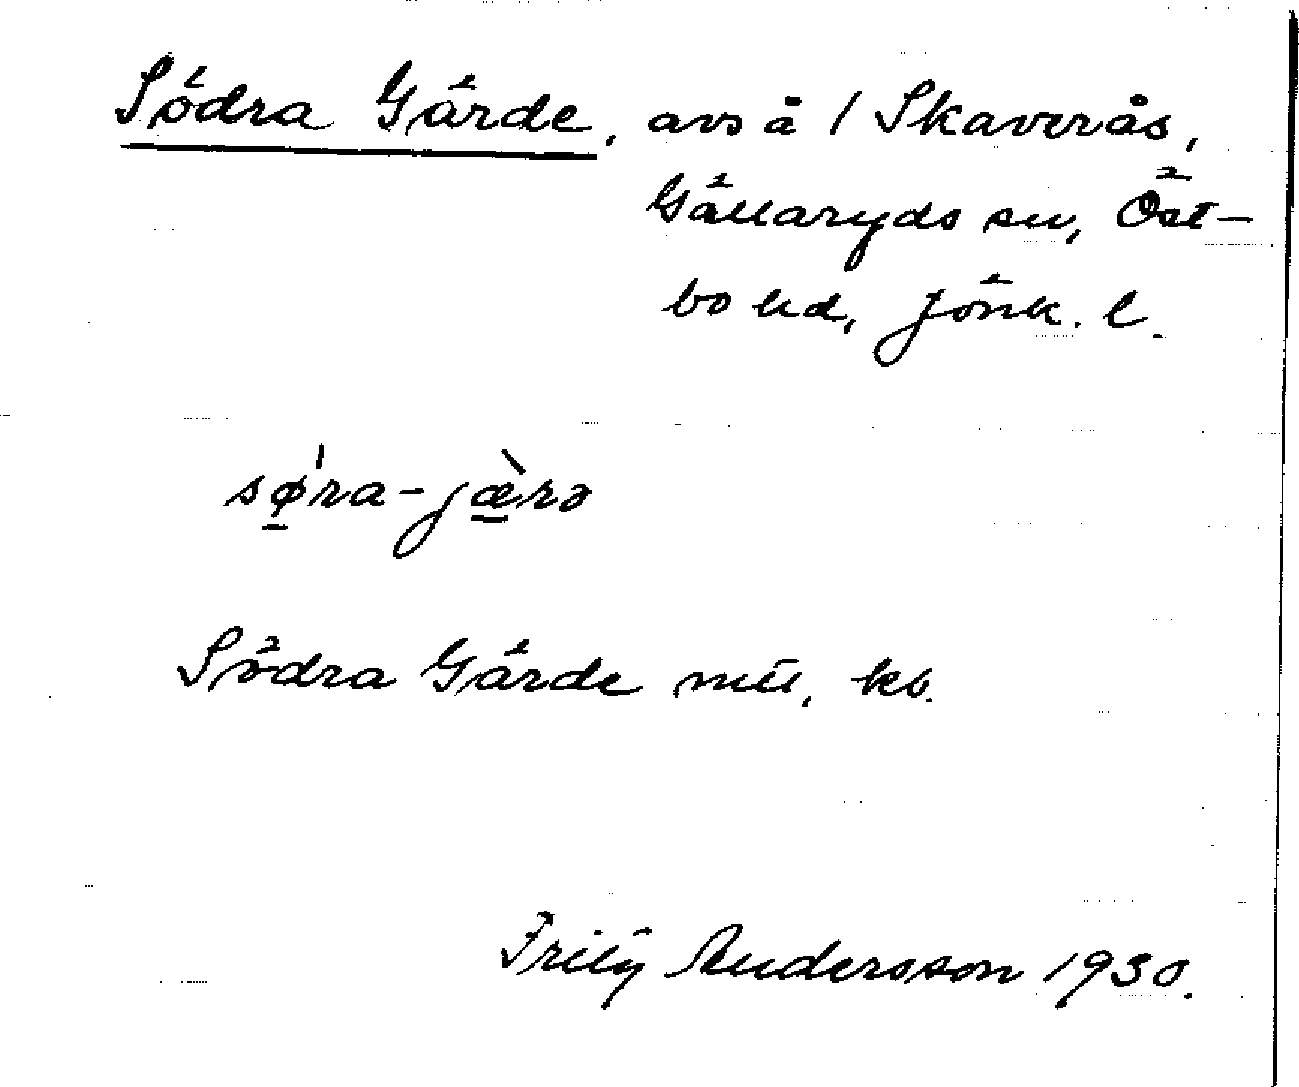 Södra Gärde, avs å / Skaverås,
Gällaryds sn, Öst-
bo hd, Jönk. l.
sǿ̠ra-jæ̠̀rə
Södra Gärde mtl, kb.
Andersson 1930.